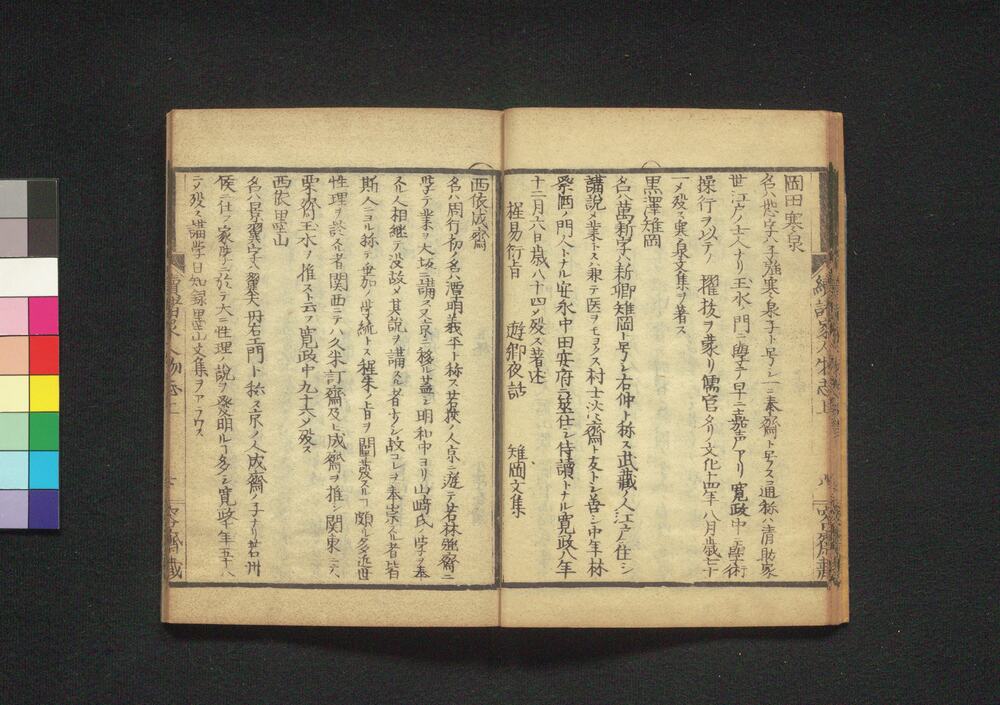 岡田寒泉
名ハ恕字ハ子強寒泉子ト号シ一ニ泰斎ト号ス通称ハ清助家
世江戸ノ士人ナリ玉水ノ門ニ学テ早ニ嘉声アリ寛政中ニ学術
操行ヲ以テノ擢抜ヲ蒙リ儒官タリノ文化十四年八月歳七十
一〆殁ス寒泉文集ヲ著ス
黒澤雉岡
名ハ萬新字ハ新卿雉岡ト号シ右仲ト称ス武蔵ノ人江戸ニ住シ
講説〆業トス兼テ医ヲモヨクス村士淡斎ト友トシ善シ中年林
祭酒ノ門人トナル安永中田安府ニ筮仕シ侍讀トナル寛政八年
十二月六日歳八十四〆殁ス著述
程易衍旨 遊郷夜話 雉岡文集
西依成齋
名ハ周行初ノ名ハ潭明義平ト称ス若狹ノ人京ニ遊テ若林強齋ニ
学テ業ヲ大坂ニ講ス又京ニ移ル蓋シ明和中ヨリ山﨑氏ノ学ヲ奉
スル人相継テ没故〆其説ヲ講スル者少クシ故コレヲ奉崇スル者皆
斯人ニヨル称テ垂加ノ学統トス程朱ノ旨ヲ開發スルヿ頗ル多近世
性理ヲ談スル者関西ニテハ久米訂齋及ヒ成齋ヲ推シ関東ニテハ
栗齋玉水ノ推スト云フ寛政中九十六〆殁ス
西依墨山
名ハ景翼字ハ翼夫丹右エ門ト称ス京ノ人成齋ノ子ナリ若州
侯ニ仕フ家学ニ於テ大ニ性理ノ説ヲ發明ルヿ多シ寛政十年五十八
ニ〆殁ス講学日知録墨山文集ヲアラワス
續諸家人物志上